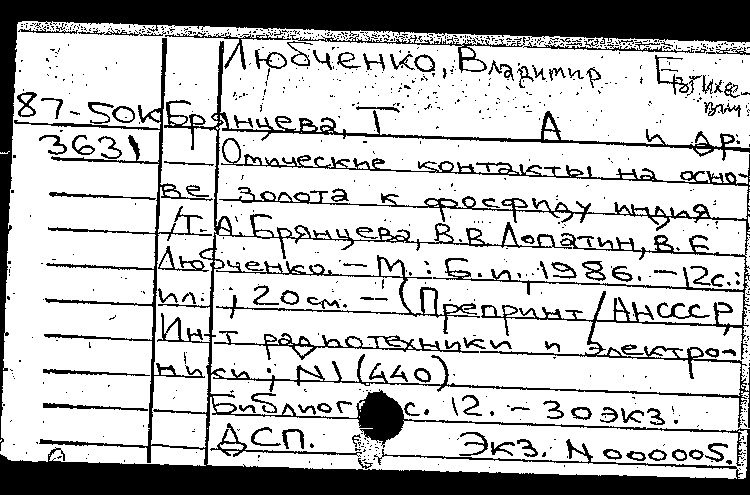 Любченко, Владимир Евтихиевич
87-50к Брянцева, Т А и др.
3631 Омические контакты на осно-
ве золота к фосфиду индия
/Т. А. Брянцева, В. В. Лопатин, В. Е.
Любченко. – М. : Б. и., 1986. – 12с. :
ил. ; 20 см. – (Препринт / АНСССР,
Ин-т радиотехники и электро-
ники ; N1 (440).
Библиогр с. 12. – 30 экз.
ДСП. Экз. N 000005.